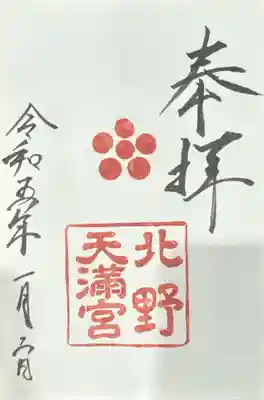 奉拝
北野
天満宮
令和五年 一月 日